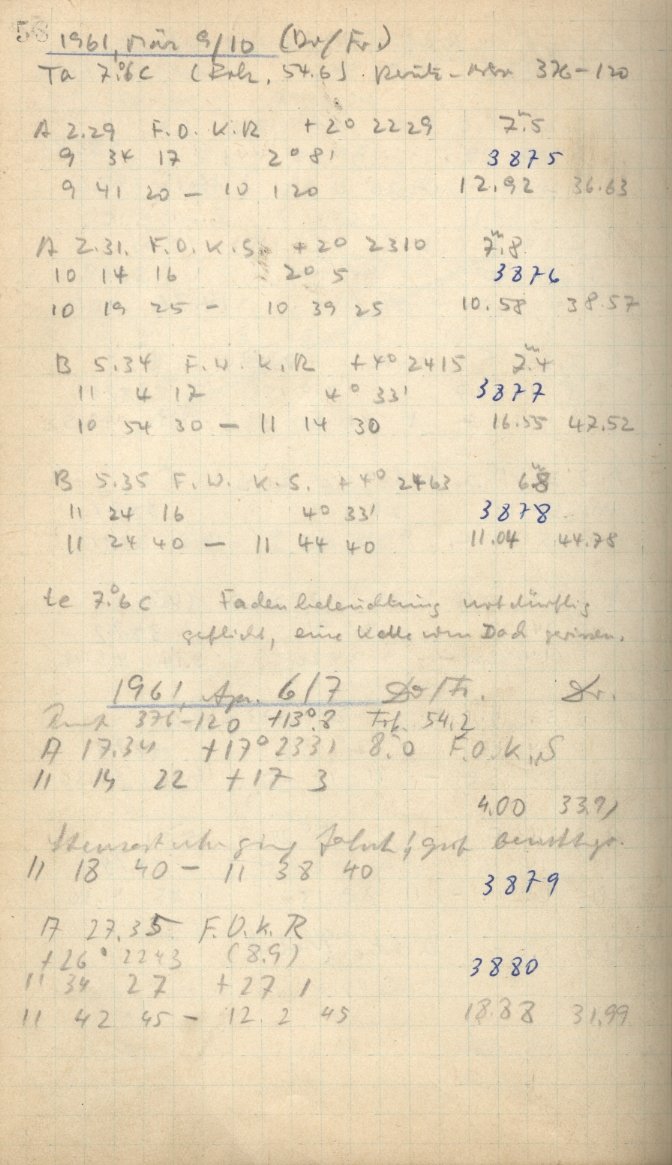 58
1961, März 9/10 (Dr/Fr.)
Ta 7.°6 C (Rohr, 54.6) 376-120
A 2.29 F.O.K.R +2° 2229 7.m5
9 34 17 2° 81 3875
9 41 20 - 10 1 20 12.92 36.63
A 2.31. F.O.K.S. +2° 2310 7.m8
10 14 16 2° 5 3876
10 19 25 - 10 39 25 10.58 38.57
B 5.34 F.W. K.R +4° 2415 7.m4
11 4 17 4° 33' 3877
10 54 30 - 11 14 30 16.55 42.52
B 5.35 F.W. K.S. +4° 2463 6.m8
11 24 16 4° 33' 3878
11 24 40 - 11 44 40 11.04 44.78
te 7.°6 C Fadenbeleuchtung notdürftig
geflickt, eine Kette vom Dach gerissen.
1961, Apr. 6/7 Dr/Fr. Dr.
376-120 +13°.8 54.2
A 17.34 +17° 2331 8.m0 F.O.K.S
11 14 22 +17 3
4.00 33.91
ging falsch!
11 18 40 - 11 38 40 3879
A 27.35 F.O.K.R
+26° 2243 (8.9) 3880
11 34 27 +27 1
11 42 45 - 12 2 45 18.88 31.99